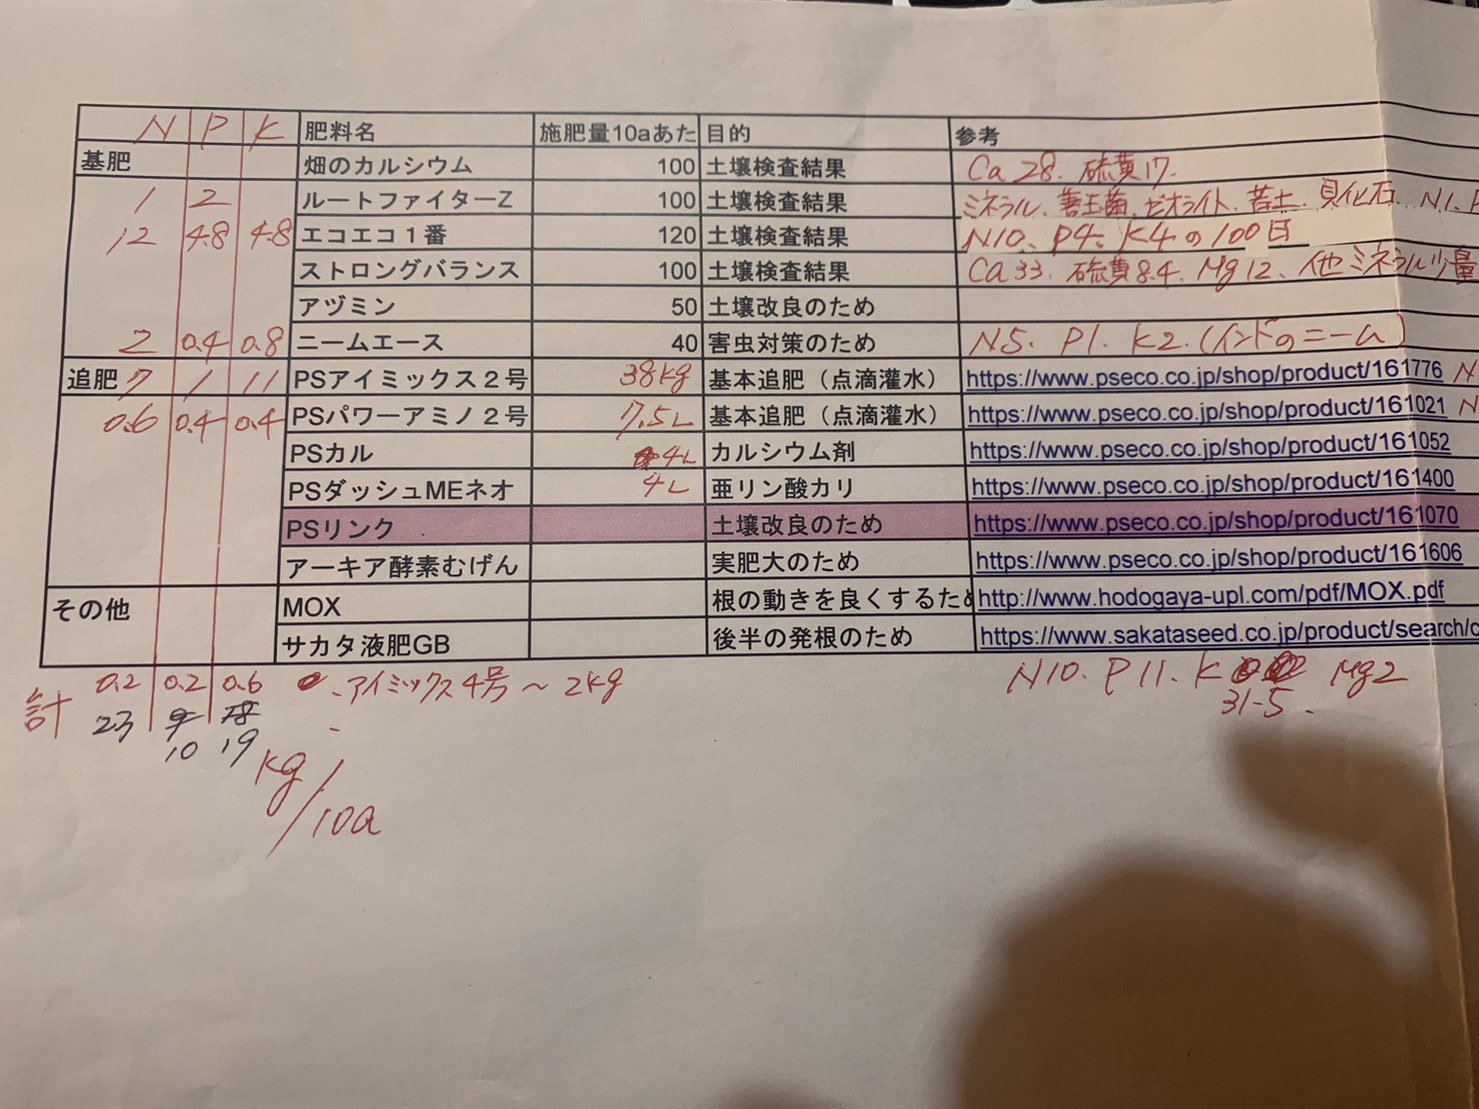 N P K 肥料名 施肥量10aあた 目的 参考
基肥 畑のカルシウム 100 土壌検査結果 Ca 28. 硫黄17.
1 2 ルートファイターZ 100 土壌検査結果 ミネラル、善玉菌、ゼオライト、苦土、貝化石、N1.
12 4.8 4.8 エコエコ１番 120 土壌検査結果 N10、P4、K4の100日
ストロングバランス 100 土壌検査結果 Ca33. 硫黄8.4. Mg12. 他ミネラル少量
アヅミン 50 土壌改良のため
2 0.4 0.8 ニームエース 40 害虫対策のため N5. P1. K2.(インドのニーム)
追肥 7 1 11 PSアイミックス２号 38kg 基本追肥（点滴灌水） https://www.pseco.co.jp/shop/product/161776 N
0.6 0.4 0.4 PSパワーアミノ２号 7.5L 基本追肥（点滴灌水） https://www.pseco.co.jp/shop/product/161021 N
PSカル 4L カルシウム剤 https://www.pseco.co.jp/shop/product/161052
PSダッシュMEネオ 4L 亜リン酸カリ https://www.pseco.co.jp/shop/product/161400
PSリンク 土壌改良のため https://www.pseco.co.jp/shop/product/161070
アーキア酵素むげん 実肥大のため https://www.pseco.co.jp/shop/product/161606
その他 MOX 根の動きを良くするため http://www.hodogaya-upl.com/pdf/MOX.pdf
サカタ液肥GB 後半の発根のため https://www.sakataseed.co.jp/product/search/
0.2 0.2 0.6 アイミックス4号〜2kg N10. P11. K Mg2
31-5.
計 23 9 18
10 19
kg/10a